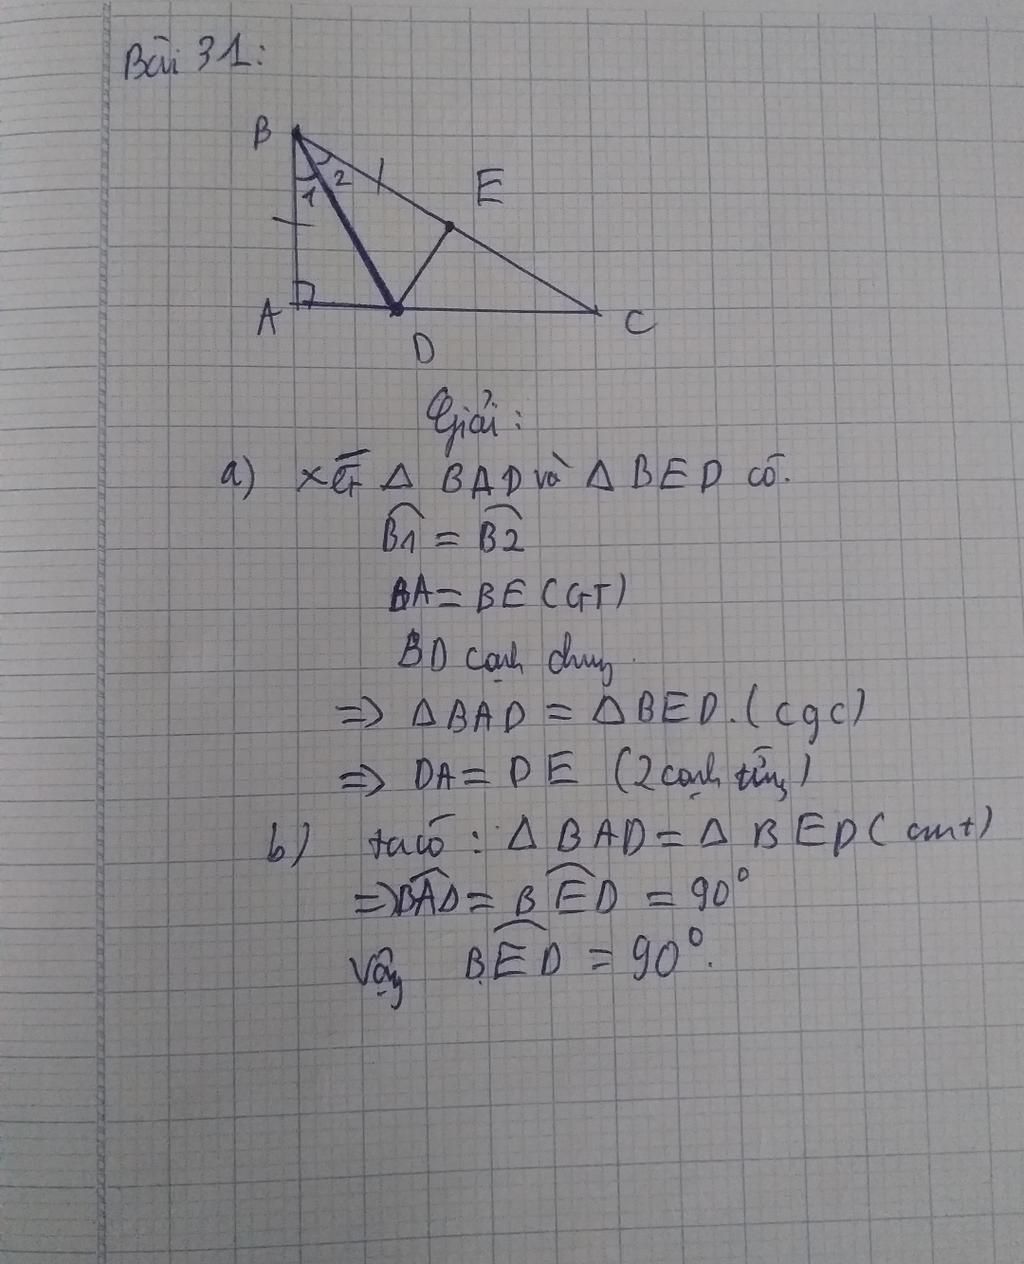 Bài 31:
B
1
2
E
A
D
C
Giải:
a) xét Δ BAD và Δ BED có.
B1 = B2
BA = BE (GT)
BD cạnh chung.
=> ΔBAD = ΔBED. (cgc)
=> DA = DE (2 cạnh tứng)
b) ta có : Δ BAD = Δ BED (cmt)
=> BAD = BED = 90°
vậy BED = 90°.